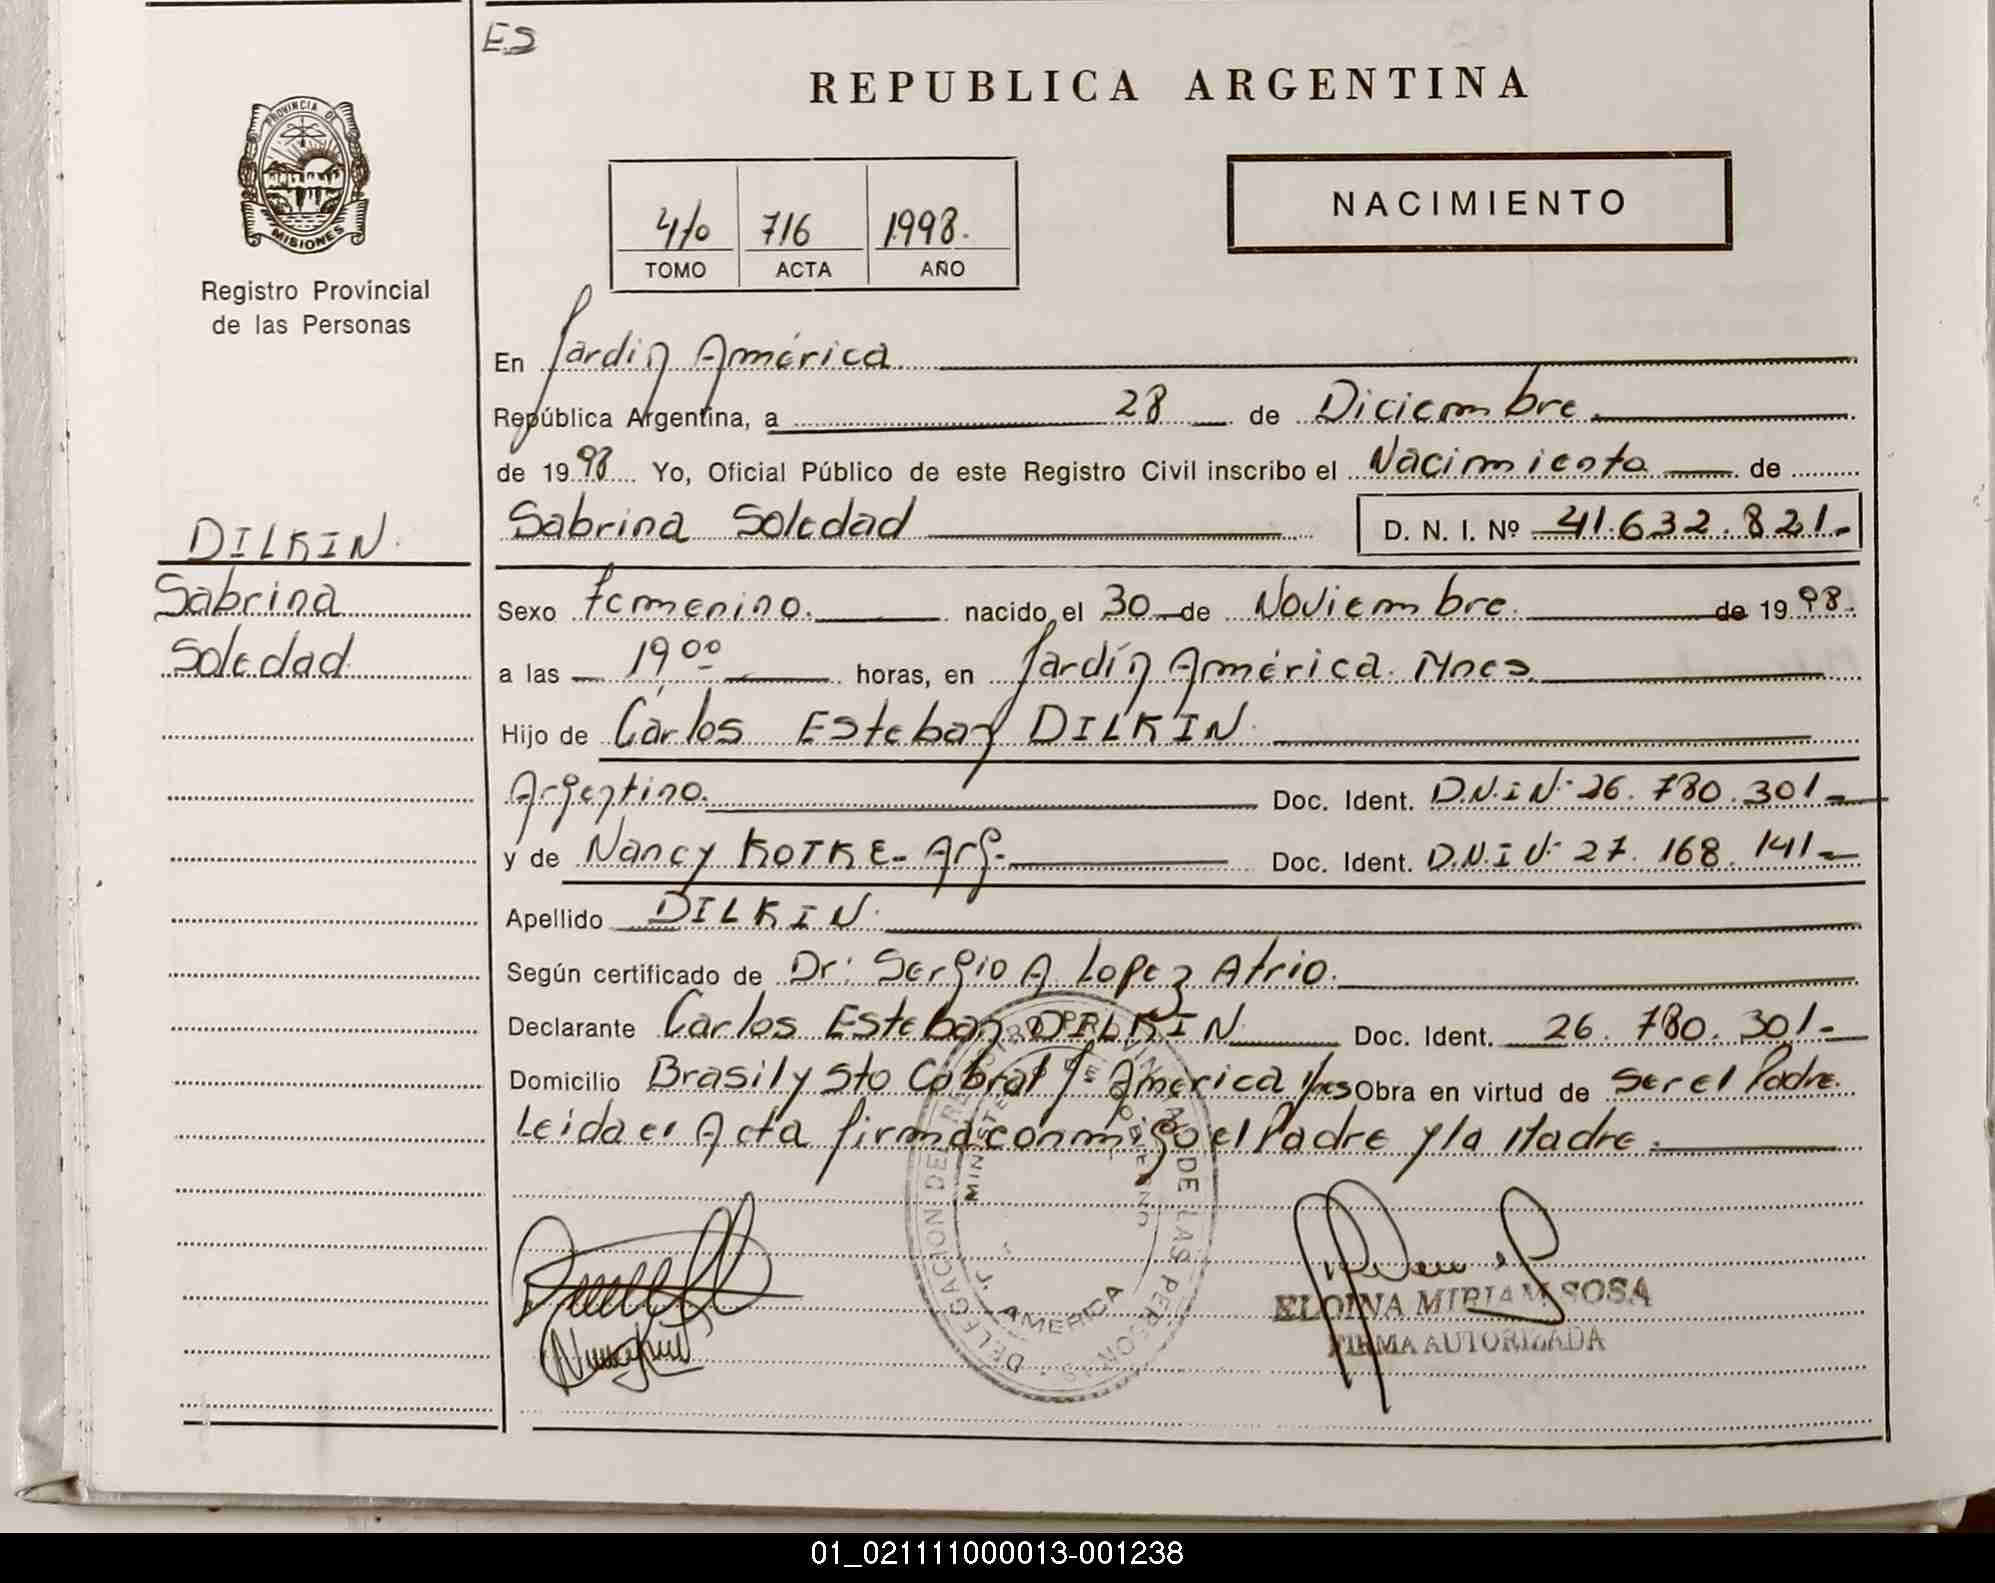 ES
REPUBLICA ARGENTINA
PROVINCIA DE
MISIONES
Registro Provincial
de las Personas
NACIMIENTO
4to 716 1998.
TOMO ACTA AÑO
En Jardín América
República Argentina, a 28 de Diciembre
de 1998 Yo, Oficial Público de este Registro Civil inscribo el Nacimiento de
Sabrina Soledad D. N. I. Nº 41.632.821.-
DILKIN.
Sabrina
Soledad
Sexo Femenino. nacido el 30 de Noviembre. de 1998.
a las 19 00 horas, en Jardín América. Mnes.
Hijo de Carlos Esteban DILKIN.
Argentino. Doc. Ident. D.N.I Nº 26.780.301-
y de Nancy KOTKE- Arg.- Doc. Ident. D.N.I Nº 27.168.141-
Apellido DILKIN.
Según certificado de Dr: Sergio A Lopez Atrio.
Declarante Carlos Esteban DILKIN Doc. Ident. 26.780.301-
Domicilio Brasil y Sto Cabral J. America Mnes Obra en virtud de ser el Padre.
Leida el Acta firma conmigo el Padre y la Madre.
DELEGACION DEL REGISTRO PROVINCIAL DE LAS PERSONAS
MINISTERIO DE GOBIERNO
J. AMERICA
ELOINA MIRIAM SOSA
FIRMA AUTORIZADA
01_021111000013-001238